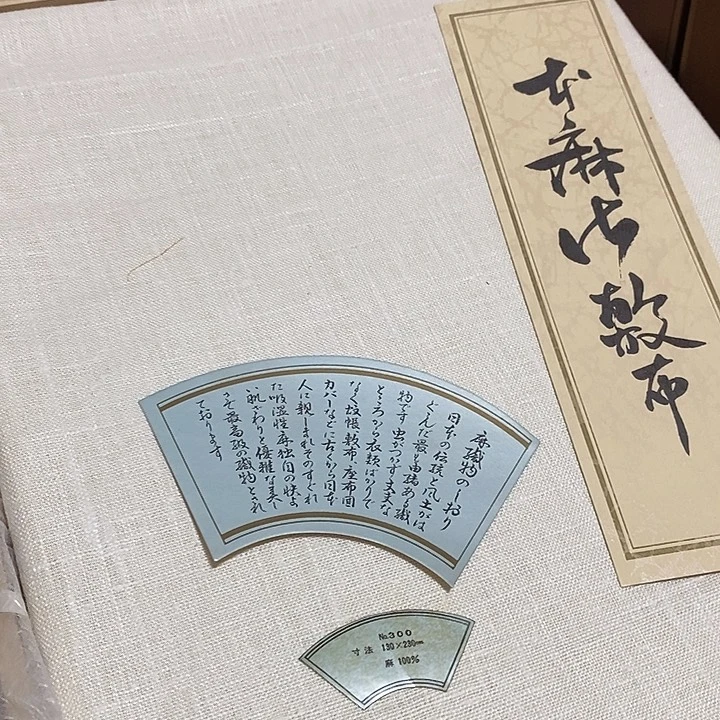 本麻御敷布
麻織物のしおり
日本の伝統と風土がは
ぐくんだ最も由緒ある織
物です 虫がつかず丈夫な
ところから衣類ばかりで
なく蚊帳、敷布、座布団
カバーなどに古くから日本
人に親しまれそのすぐれ
た吸湿性麻独自の快よ
い肌ざわりと優雅な美し
さを最高級の織物とされ
ております
No.300
寸法 130×230cm
麻 100%